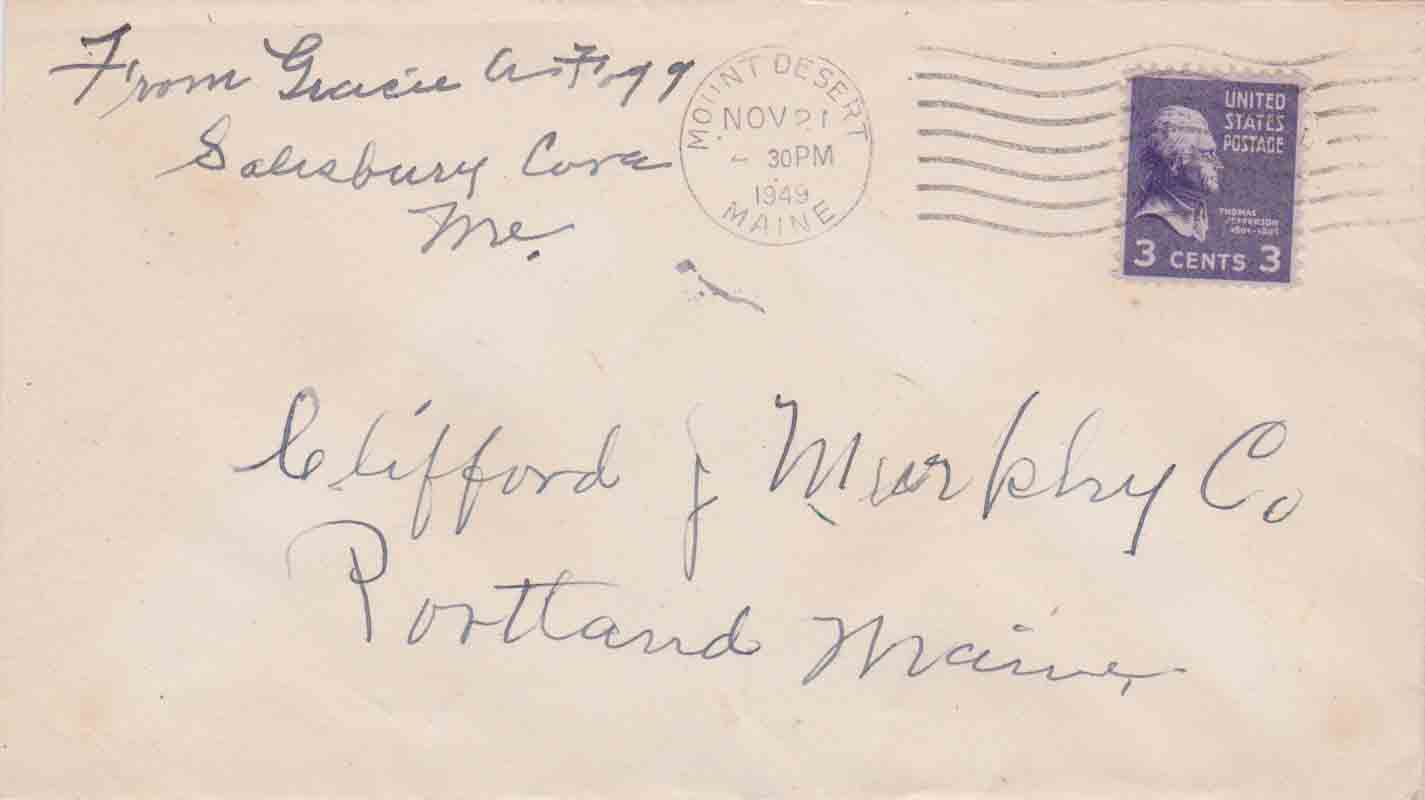 From Gracie A. Fogg
Salisbury Cove
Me.
MOUNT DESERT
NOV 21
30 PM
1949
MAINE
UNITED
STATES
POSTAGE
THOMAS
JEFFERSON
1801-1809
3 CENTS 3
Clifford J Murphy Co
Portland Maine,